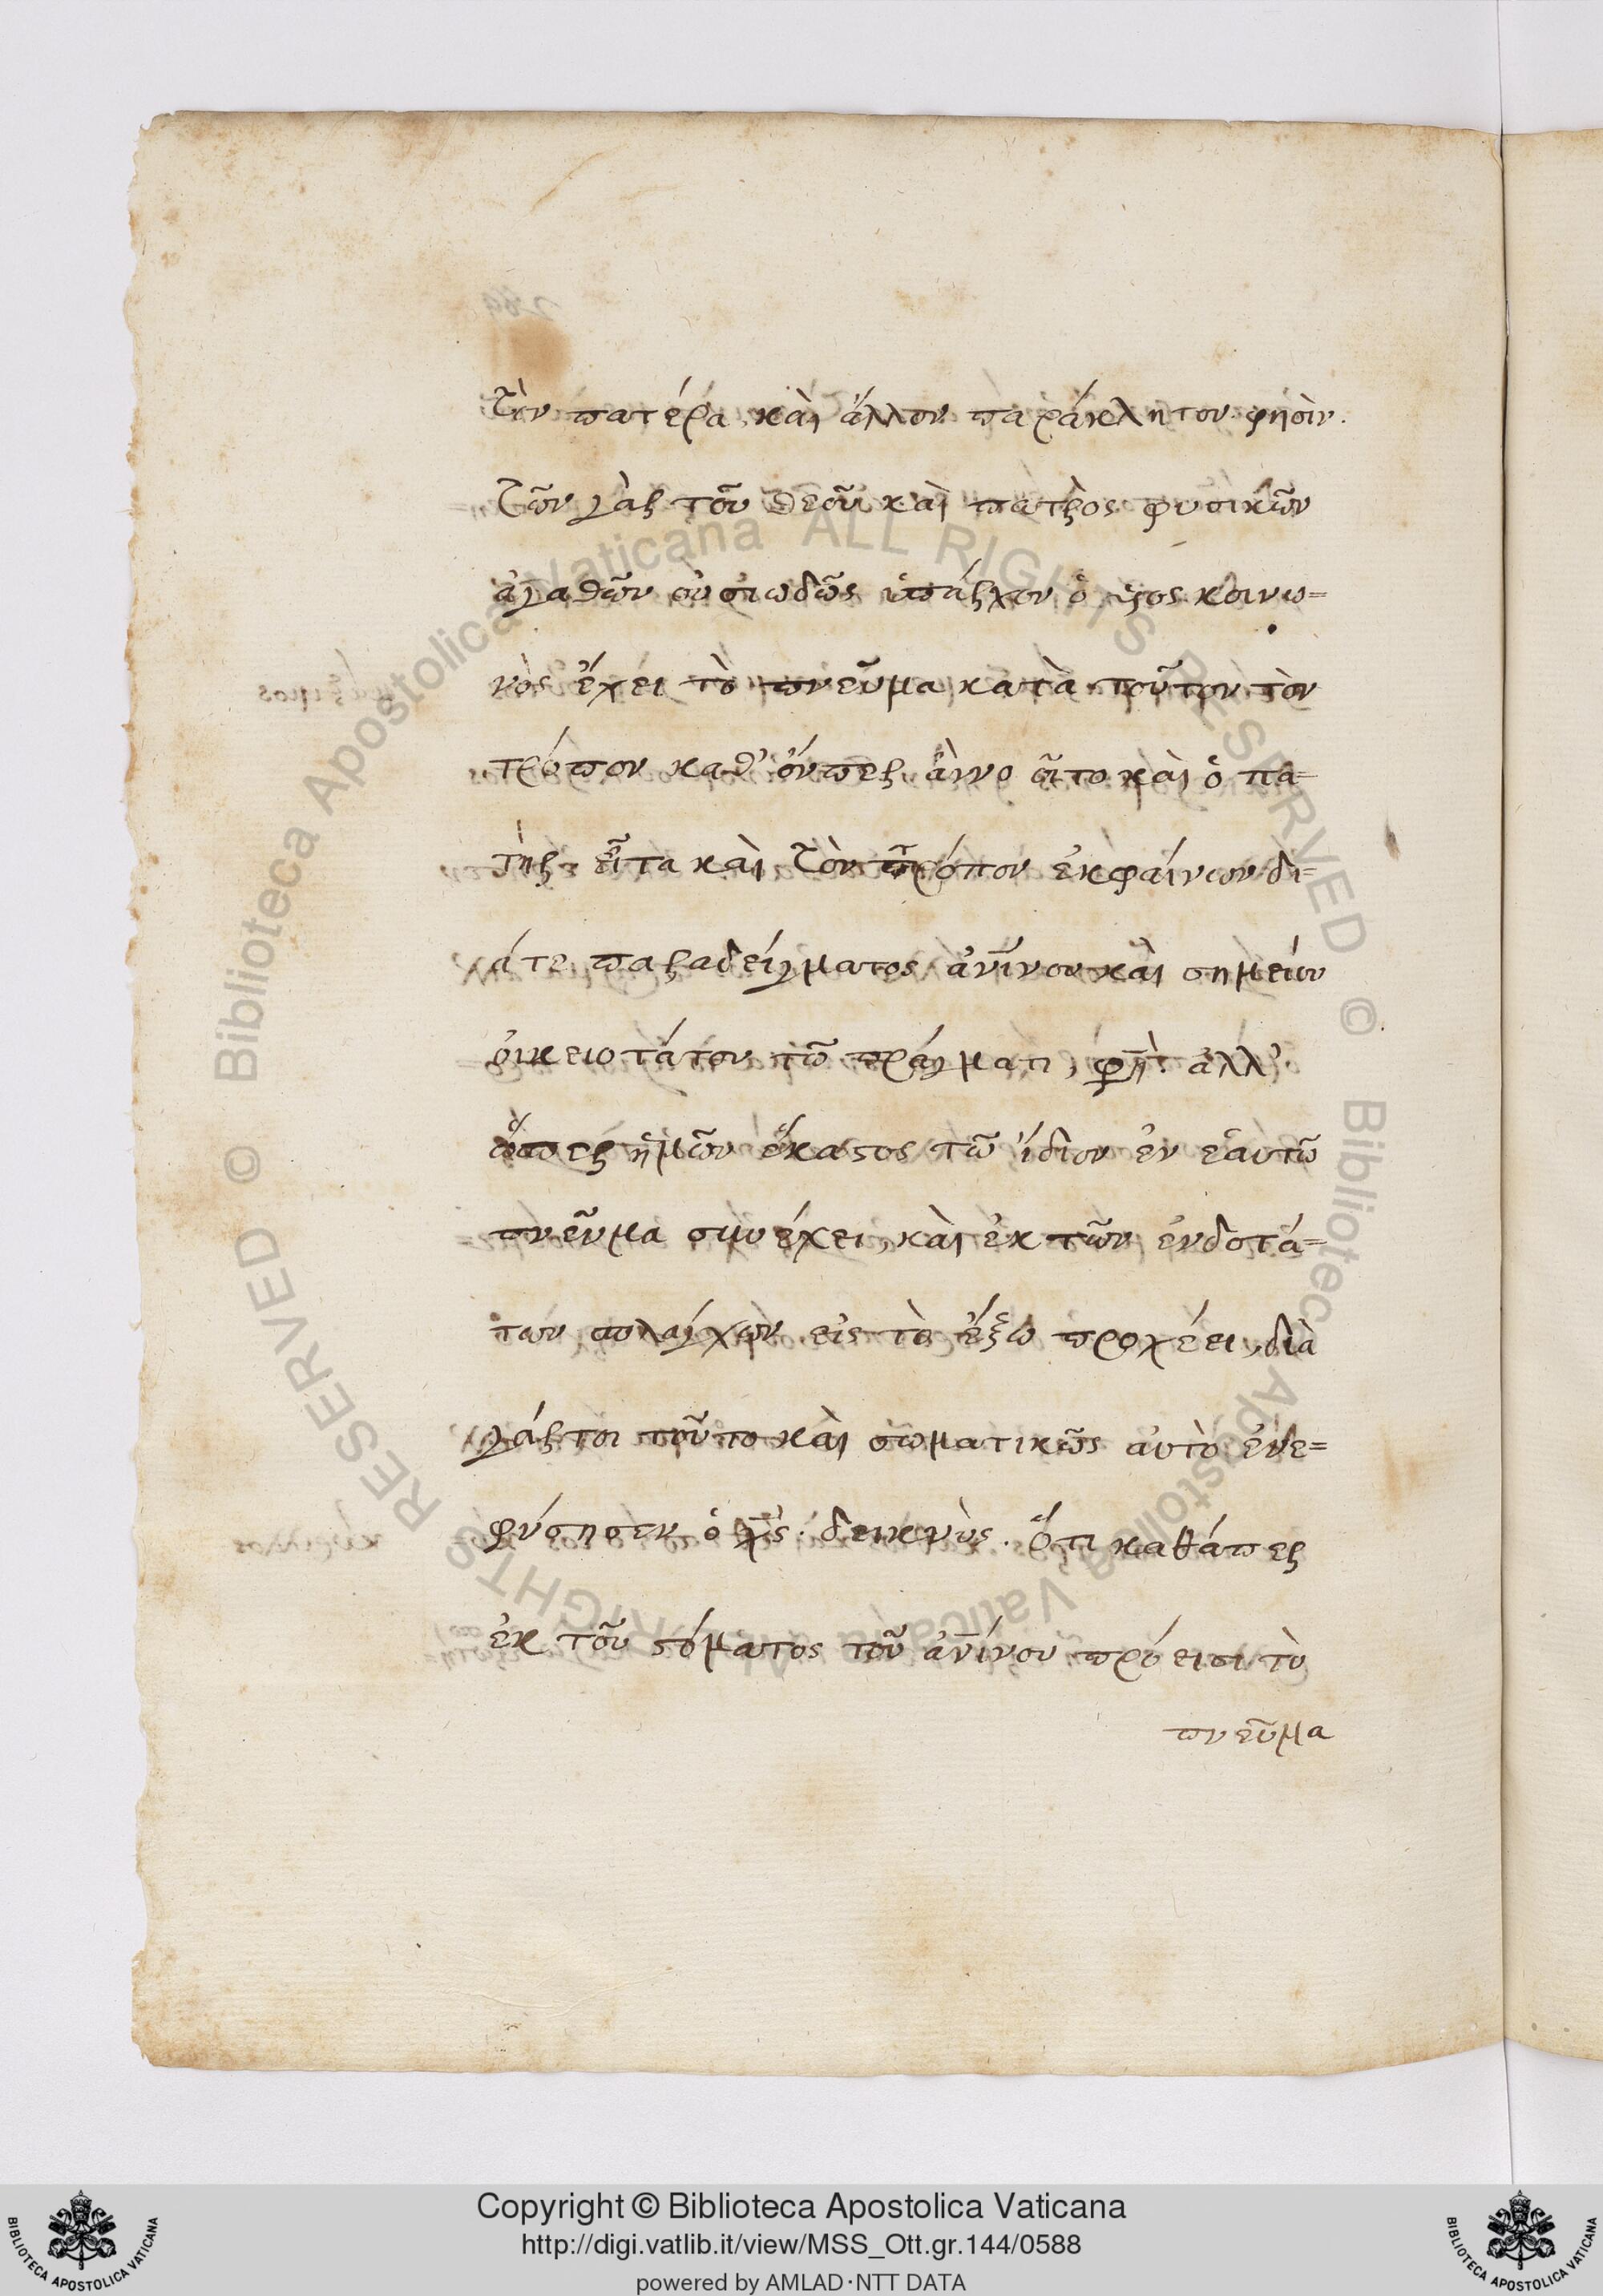 τὸν πατέρα, καὶ ἄλλον παράκλητον φησὶν.
τῶν γὰρ τοῦ θεοῦ καὶ πατρὸς φυσικῶν
ἀγαθῶν οὐσιωδῶς ὑπάρχον ὁ κοινω=
νὸς ἔχει τὸ πνεῦμα κατὰ τοῦτον τὸν
τρόπον καθ' ὅνπερ ἂν νοοῖτο καὶ ὁ πα=
τὴρ εἶτα καὶ τὸν τρόπον ἐκφαίνων δι=
ά τε παραδείγματος ἀν̅ίνου καὶ σημείου
οἰκειοτάτου τῶ πράγματι, ἀλλ'
ὥσπερ ἡμῶν ἕκαστος τῶ ἴδιον ἐν ἑαυτῶ
πνεῦμα συνέχει, καὶ ἐκ τῶν ἐνδοτά=
των σπλάγχνων εἰς τὸ ἔξω προχέει, διὰ
γάρ τοι τοῦτο καὶ σωματικῶς αὐτὸ ἐνε=
φύσησεν ὁ χ̅ς̅. δεικνὺς. ὅτι καθάπερ
ἐκ τοῦ στόματος τοῦ ἀν̅ίνου πρόεισι τὸ
πνεῦμα
Copyright © Biblioteca Apostolica Vaticana
http://digi.vatlib.it/view/MSS_Ott.gr.144/0588
powered by AMLAD·NTT DATA
BIBLIOTECA APOSTOLICA VATICANA
BIBLIOTECA APOSTOLICA VATICANA
© Biblioteca Apostolica Vaticana ALL RIGHTS RESERVED
© Biblioteca Apostolica Vaticana ALL RIGHTS RESERVED